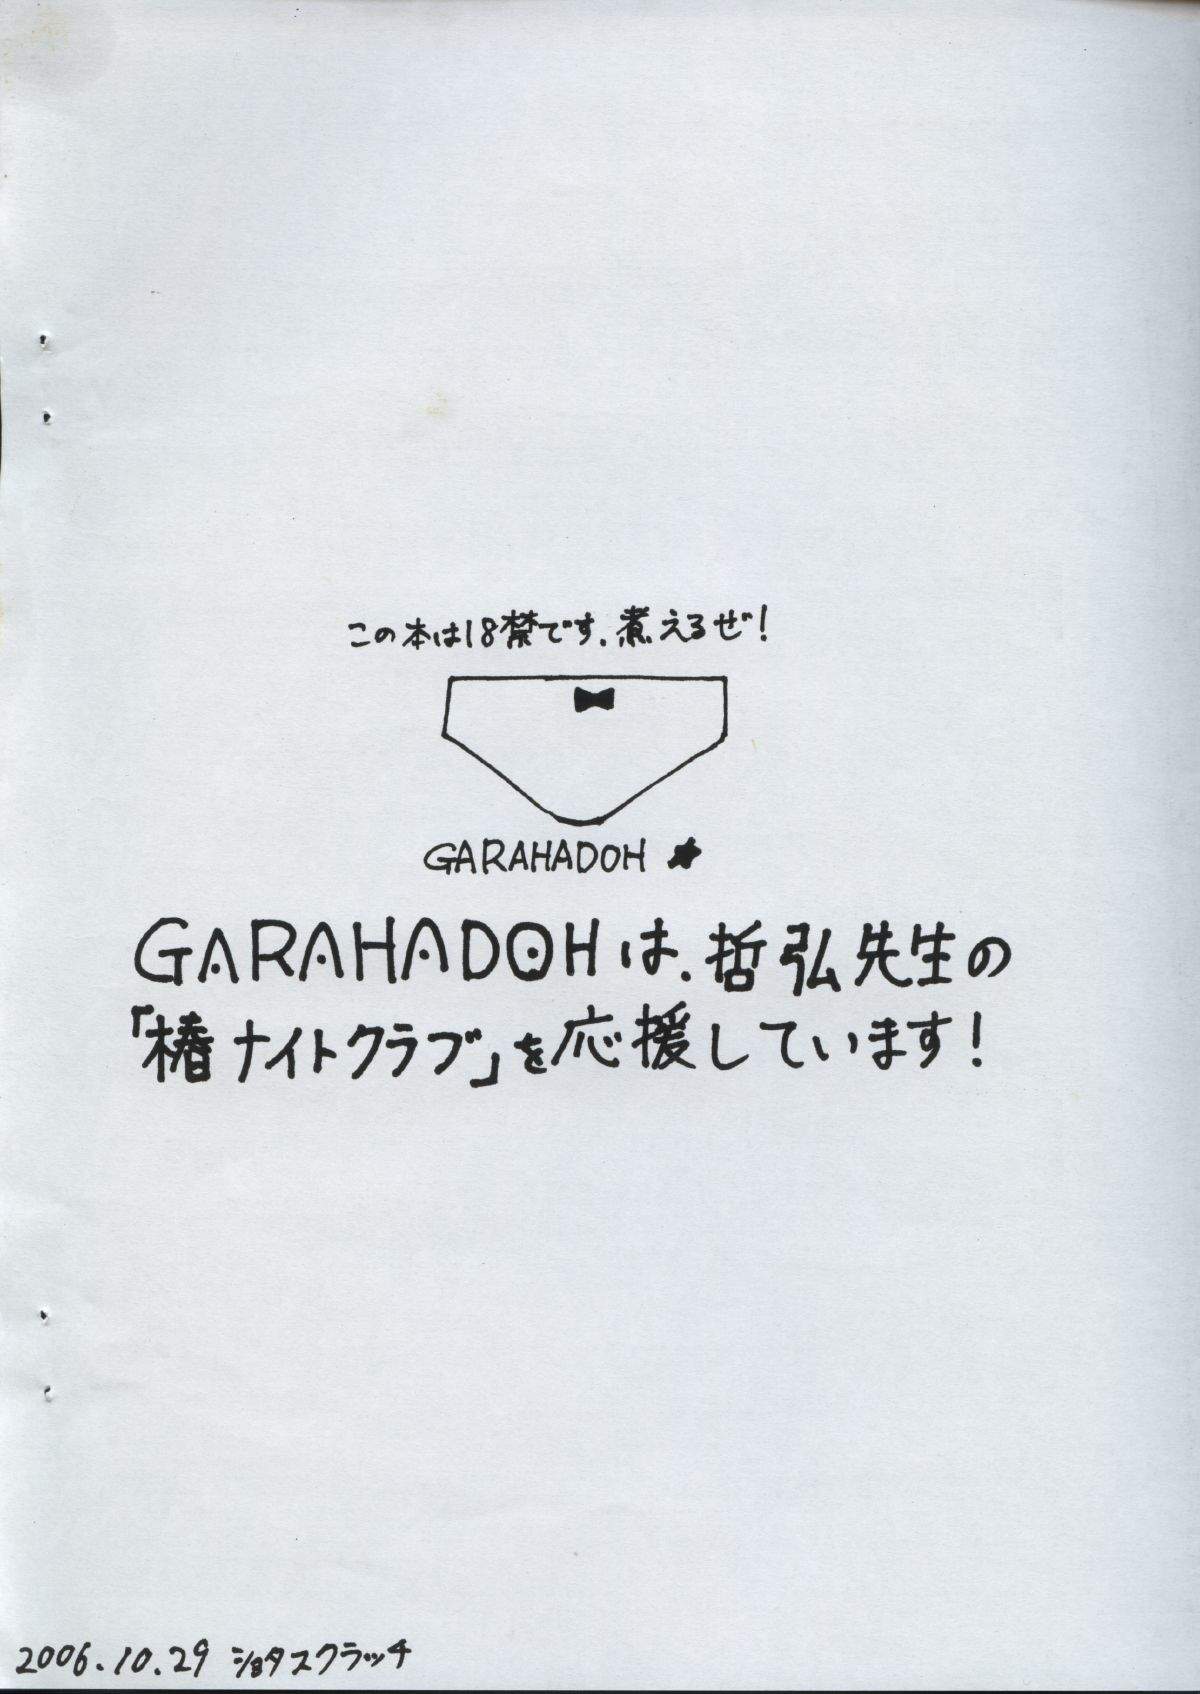 この本は18禁です、煮えるぜ!
GARAHADOH ★
GARAHADOHは、哲弘先生の
「椿ナイトクラブ」を応援しています!
2006.10.29 ショタスクラッチ